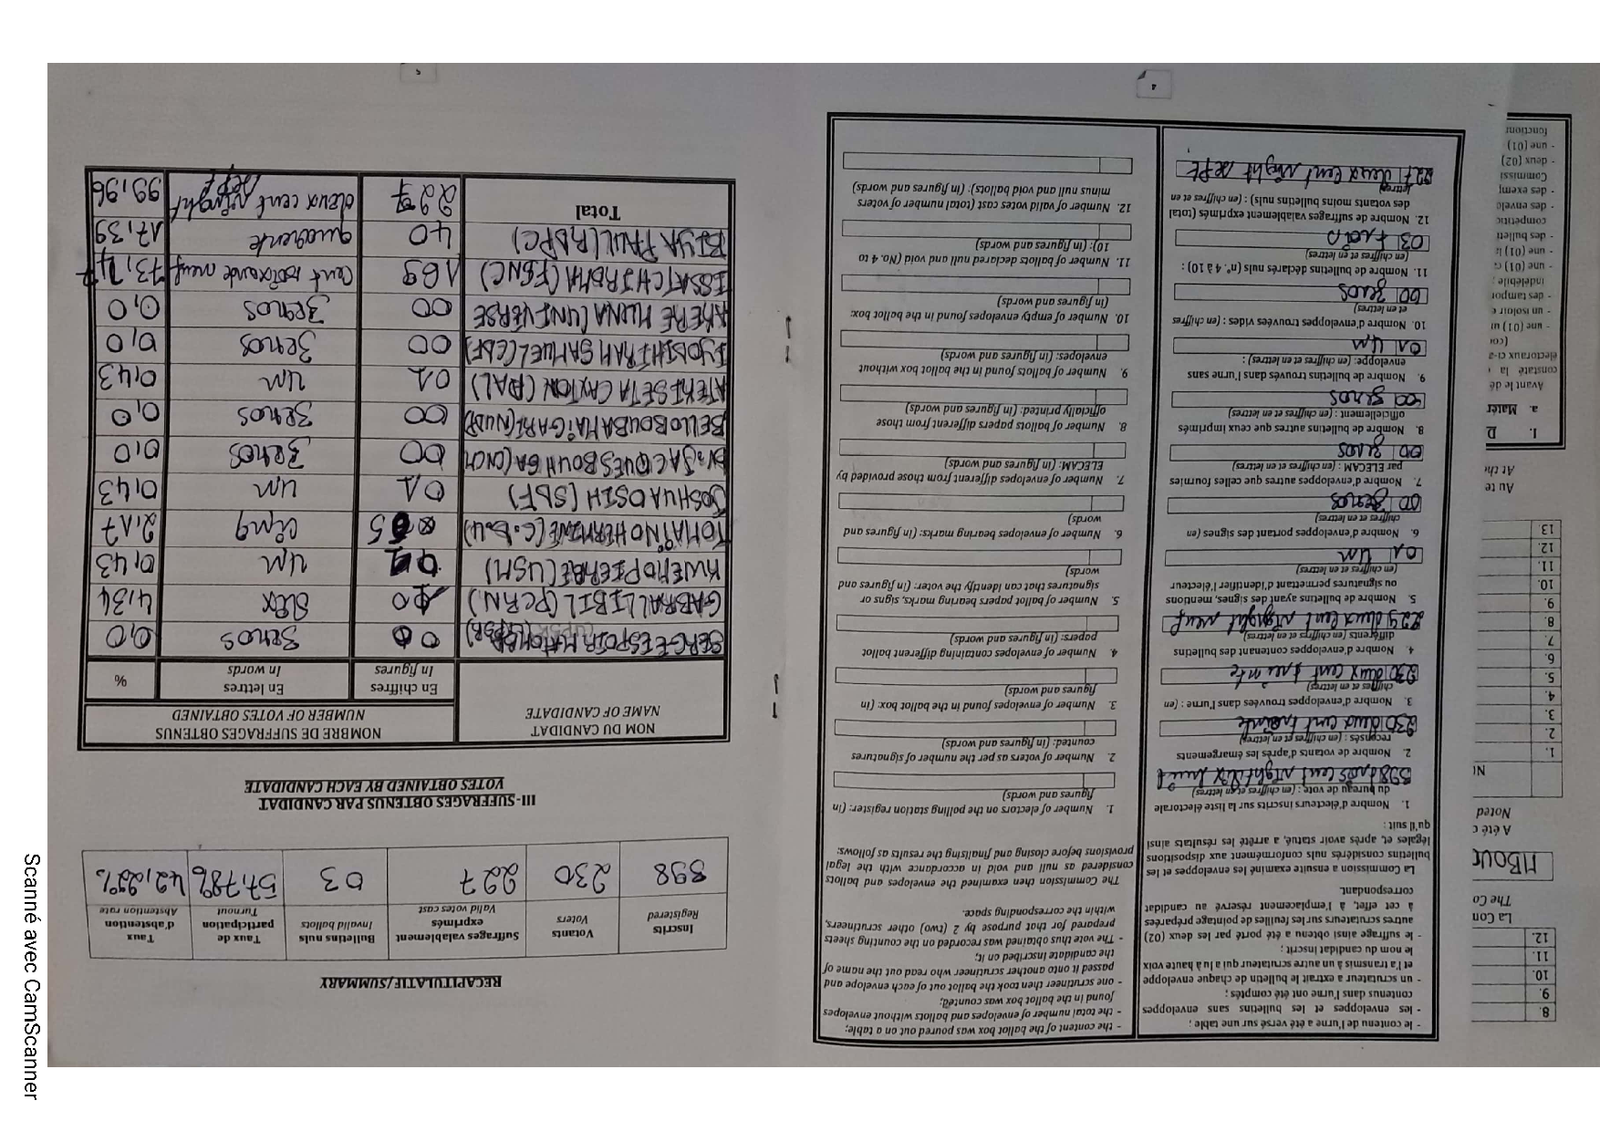 4
- le contenu de l'urne a été versé sur une table ;
- les enveloppes et les bulletins sans enveloppes
contenus dans l'urne ont été comptés ;
- un scrutateur a extrait le bulletin de chaque enveloppe
et l'a transmis à un autre scrutateur qui a lu à haute voix
le nom du candidat inscrit ;
- le suffrage ainsi obtenu a été porté par les deux (02)
autres scrutateurs sur les feuilles de pointage préparées
à cet effet, à l'emplacement réservé au candidat
correspondant.
La Commission a ensuite examiné les enveloppes et les
bulletins considérés nuls conformément aux dispositions
légales et, après avoir statué, a arrêté les résultats ainsi
qu'il suit :
1. Nombre d'électeurs inscrits sur la liste électorale
du bureau de vote : (en chiffres et en lettres)
398
2. Nombre de votants d'après les émargements
recensés : (en chiffres et en lettres)
230 deux cent trente
3. Nombre d'enveloppes trouvées dans l'urne : (en
chiffres et en lettres)
230 deux cent trente
4. Nombre d'enveloppes contenant des bulletins
différents (en chiffres et en lettres)
229 deux cent vinght neuf
5. Nombre de bulletins ayant des signes, mentions
ou signatures permettant d'identifier l'électeur
(en chiffres et en lettres)
01 um
6. Nombre d'enveloppes portant des signes (en
chiffres et en lettres)
00 zeros
7. Nombre d'enveloppes autres que celles fournies
par ELECAM : (en chiffres et en lettres)
00 zeros
8. Nombre de bulletins autres que ceux imprimés
officiellement : (en chiffres et en lettres)
00 zeros
9. Nombre de bulletins trouvés dans l'urne sans
enveloppe: (en chiffres et en lettres) :
01 um
10. Nombre d'enveloppes trouvées vides : (en chiffres
et en lettres)
00 zeros
11. Nombre de bulletins déclarés nuls (n°. 4 à 10) :
(en chiffres et en lettres)
03
12. Nombre de suffrages valablement exprimés (total
des votants moins bulletins nuls) : (en chiffres et en
lettres)
227 deux cent vinght sept
- the content of the ballot box was poured out on a table;
- the total number of envelopes and ballots without envelopes
found in the ballot box was counted;
- one scrutineer then took the ballot out of each envelope and
passed it onto another scrutineer who read out the name of
the candidate inscribed on it;
- The vote thus obtained was recorded on the counting sheets
prepared for that purpose by 2 (two) other scrutineers,
within the corresponding space.
The Commission then examined the envelopes and ballots
considered as null and void in accordance with the legal
provisions before closing and finalising the results as follows:
1. Number of electors on the polling station register: (in
figures and words)
2. Number of voters as per the number of signatures
counted: (in figures and words)
3. Number of envelopes found in the ballot box: (in
figures and words)
4. Number of envelopes containing different ballot
papers: (in figures and words)
5. Number of ballot papers bearing marks, signs or
signatures that can identify the voter: (in figures and
words)
6. Number of envelopes bearing marks: (in figures and
words)
7. Number of envelopes different from those provided by
ELECAM: (in figures and words)
8. Number of ballots papers different from those
officially printed: (in figures and words)
9. Number of ballots found in the ballot box without
envelopes: (in figures and words)
10. Number of empty envelopes found in the ballot box:
(in figures and words)
11. Number of ballots declared null and void (No. 4 to
10): (in figures and words)
12. Number of valid votes cast (total number of voters
minus null and void ballots): (in figures and words)
5
RECAPITULATIF/SUMMARY
Inscrits
Registered
Votants
Voters
Suffrages valablement
exprimés
Valid votes cast
Bulletins nuls
Invalid ballots
Taux de
participation
Turnout
Taux
d'abstention
Abstention rate
398 230 227 03 57,78% 42,22%
III- SUFFRAGES OBTENUS PAR CANDIDAT
VOTES OBTAINED BY EACH CANDIDATE
NOM DU CANDIDAT
NAME OF CANDIDATE
NOMBRE DE SUFFRAGES OBTENUS
NUMBER OF VOTES OBTAINED
En chiffres
In figures
En lettres
In words
%
SERGE ESPOIR MATOMBA (UPSR) 00 zeros 0,0
GABRAL LIBIL (PCRN) 10 dix 4,34
KWEMO PIERRE (USM) 01 um 0,43
TOMAÏNO HERMINE 05 cinq 2,17
JOSHUA OSIH (SDF) 01 um 0,43
Dr. JACQUES BOUHGA 00 zeros 0,0
BELLO BOUBA MAÏGARI 00 zeros 0,0
ATEKI SETA CAXTON (PAL) 01 um 0,43
IYODI HIRAM SAMUEL 00 zeros 0,0
AKERE MUNA (UNIVERSE 00 zeros 0,0
ISSA TCHIROMA (FSNC) 169 cent soixante neuf 73,47
BIYA PAUL (RDPC) 40 quarente 17,39
Total 227 deux cent vinght sept 99,96
Scanné avec CamScanner